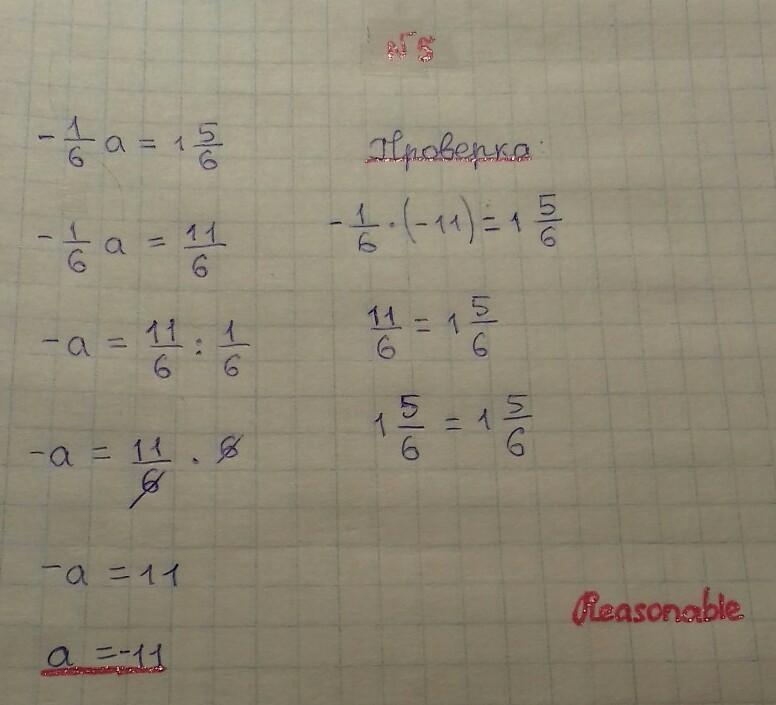 №5
-1/6 a = 1 5/6
-1/6 a = 11/6
-a = 11/6 : 1/6
-a = 11/6 · 6
-a = 11
a = -11
Проверка:
-1/6 · (-11) = 1 5/6
11/6 = 1 5/6
1 5/6 = 1 5/6
Reasonable